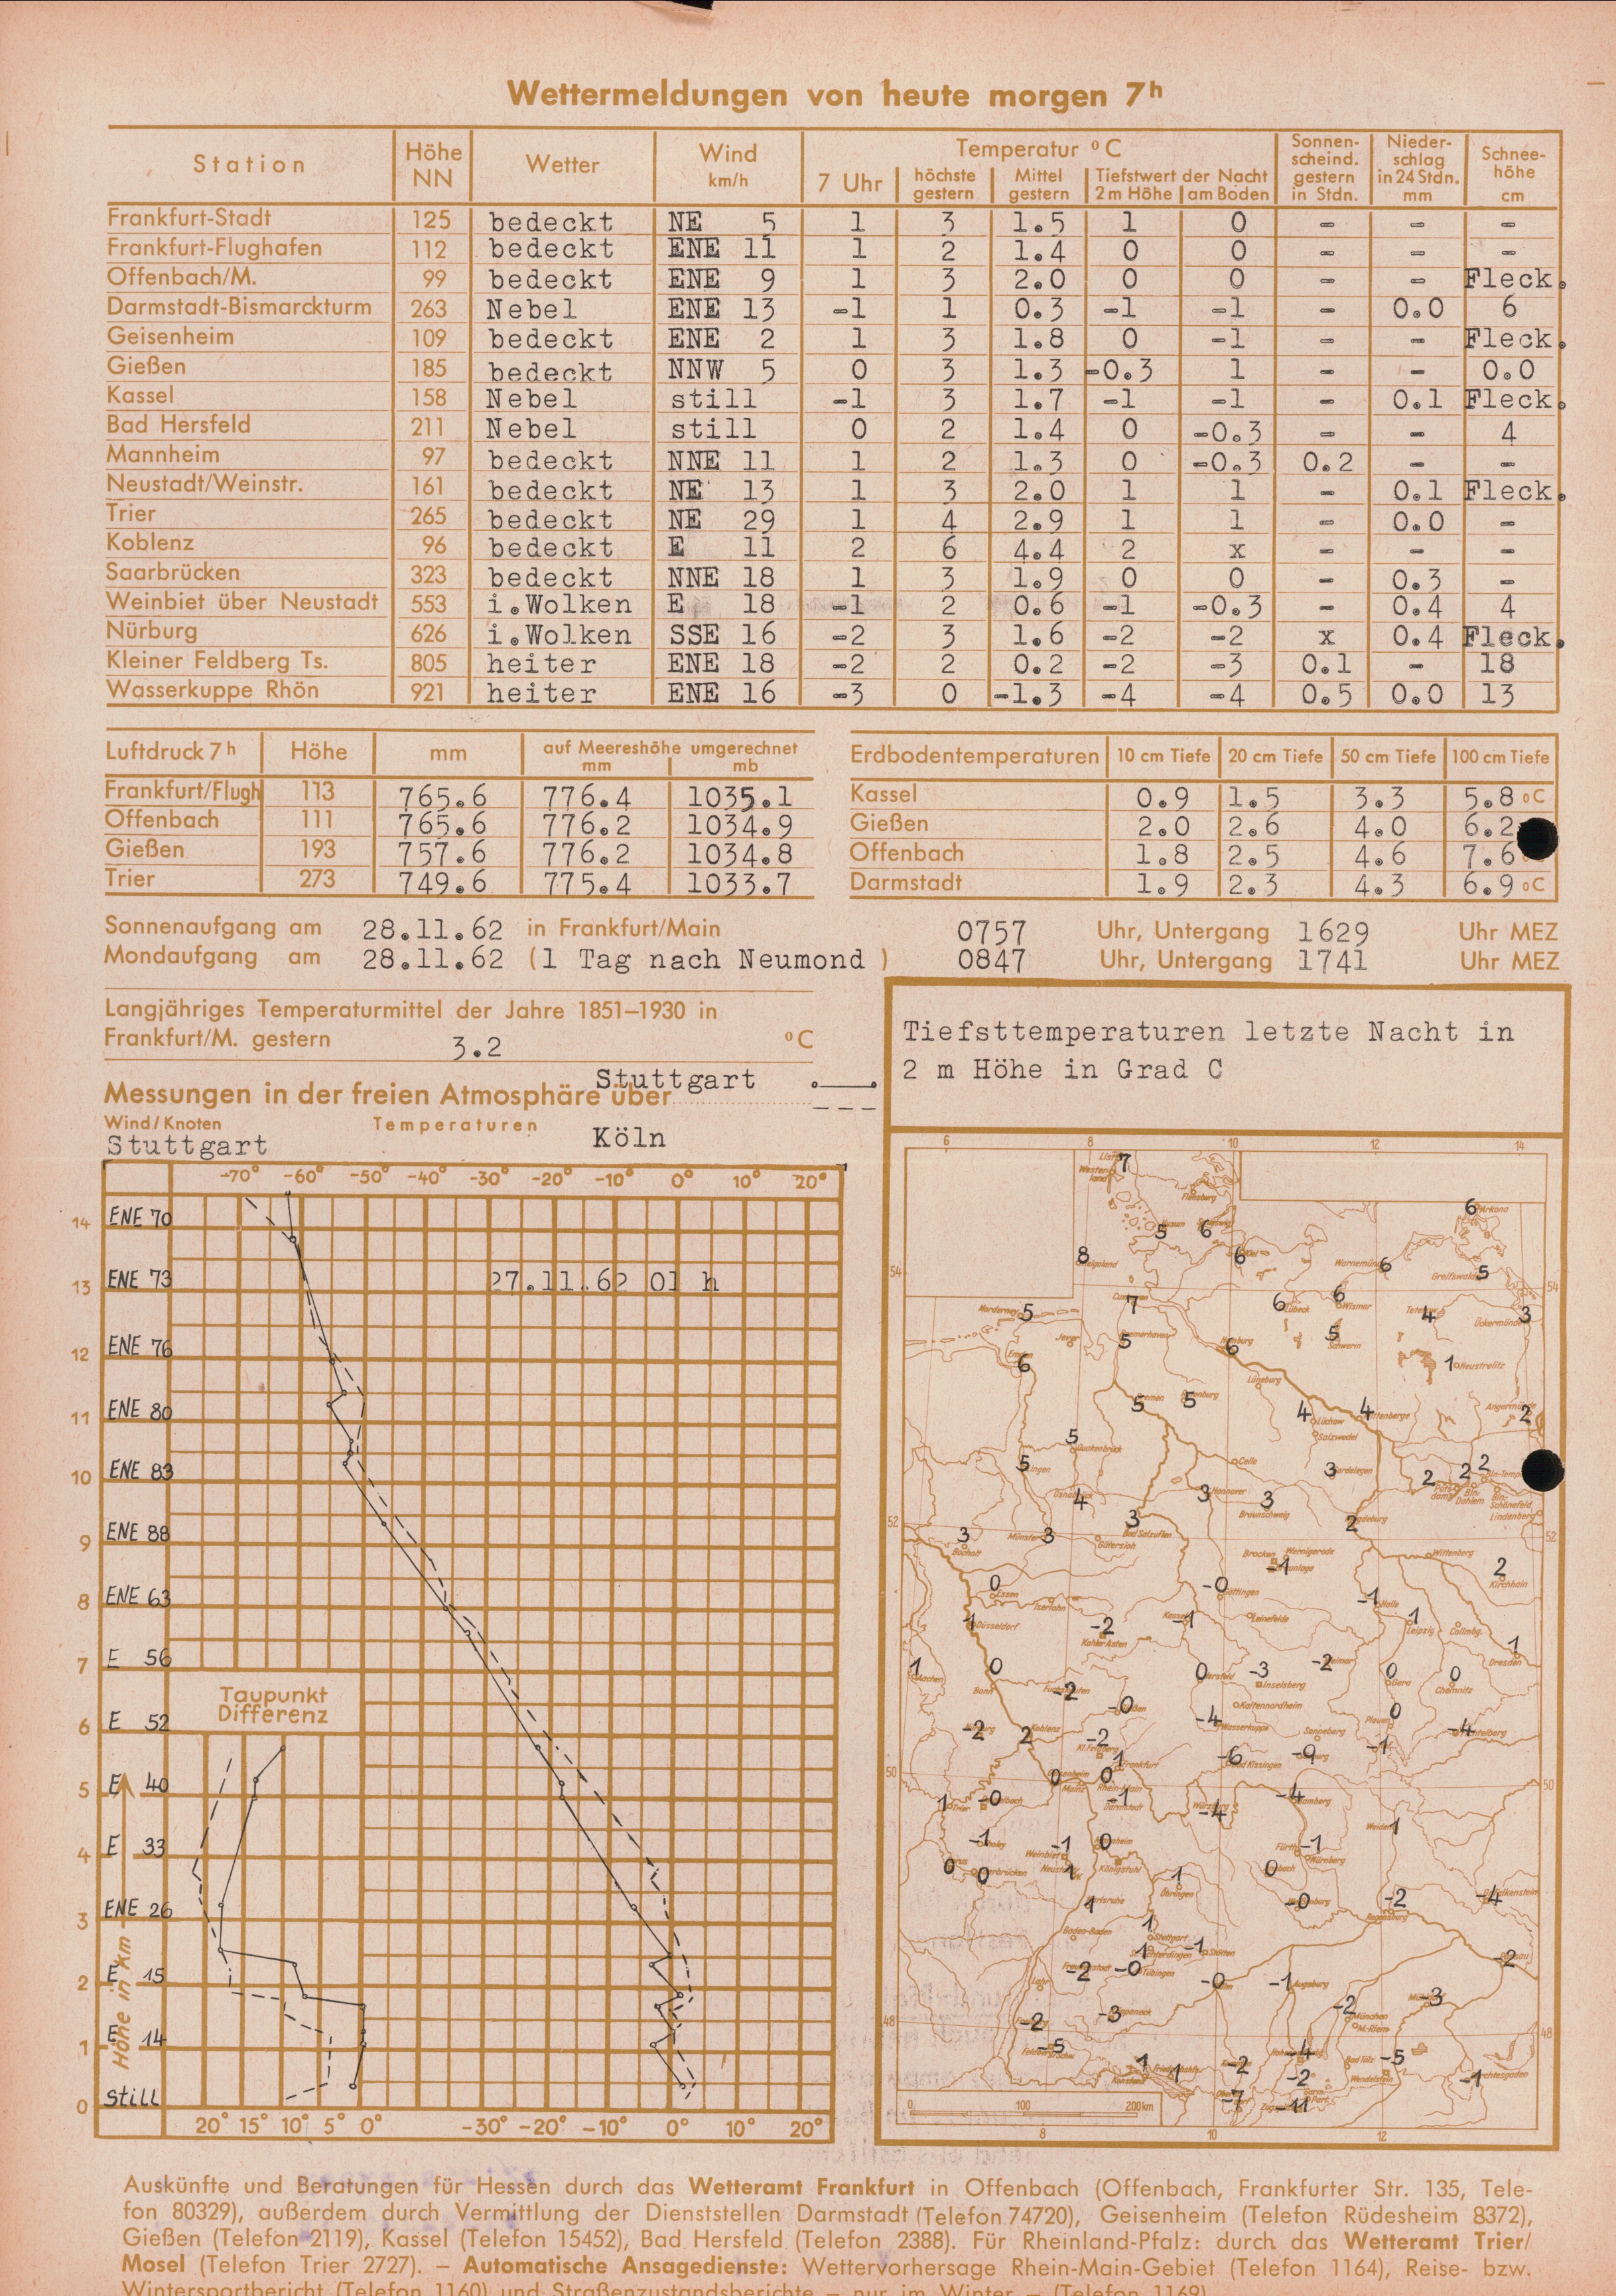 Wettermeldungen von heute morgen 7h
Station Höhe NN Wetter Wind km/h Temperatur °C Sonnenscheind. gestern in Stdn. Niederschlag in 24 Stdn. mm Schneehöhe cm
7 Uhr höchste gestern Mittel gestern Tiefstwert der Nacht 2m Höhe am Boden
Frankfurt-Stadt 125 bedeckt NE 5 1 3 1.5 1 0 - - -
Frankfurt-Flughafen 112 bedeckt ENE 11 1 2 1.4 0 0 - - -
Offenbach/M. 99 bedeckt ENE 9 1 3 2.0 0 0 - - Fleck.
Darmstadt-Bismarckturm 263 Nebel ENE 13 -1 1 0.3 -1 -1 - 0.0 6
Geisenheim 109 bedeckt ENE 2 1 3 1.8 0 -1 - - Fleck.
Gießen 185 bedeckt NNW 5 0 3 1.3 -0.3 1 - - 0.0
Kassel 158 Nebel still -1 3 1.7 -1 -1 - 0.1 Fleck.
Bad Hersfeld 211 Nebel still 0 2 1.4 0 -0.3 - - 4
Mannheim 97 bedeckt NNE 11 1 2 1.3 0 -0.3 0.2 - -
Neustadt/Weinstr. 161 bedeckt NE 13 1 3 2.0 1 1 - 0.1 Fleck.
Trier 265 bedeckt NE 29 1 4 2.9 1 1 - 0.0 -
Koblenz 96 bedeckt E 11 2 6 4.4 2 x - - -
Saarbrücken 323 bedeckt NNE 18 1 3 1.9 0 0 - 0.3 -
Weinbiet über Neustadt 553 i.Wolken E 18 -1 2 0.6 -1 -0.3 - 0.4 4
Nürburg 626 i.Wolken SSE 16 -2 3 1.6 -2 -2 x 0.4 Fleck.
Kleiner Feldberg Ts. 805 heiter ENE 18 -2 2 0.2 -2 -3 0.1 - 18
Wasserkuppe Rhön 921 heiter ENE 16 -3 0 -1.3 -4 -4 0.5 0.0 13
Luftdruck 7h Höhe mm auf Meereshöhe umgerechnet mm mb
Frankfurt/Flugh 113 765.6 776.4 1035.1
Offenbach 111 765.6 776.2 1034.9
Gießen 193 757.6 776.2 1034.8
Trier 273 749.6 775.4 1033.7
Erdbodentemperaturen 10 cm Tiefe 20 cm Tiefe 50 cm Tiefe 100 cm Tiefe
Kassel 0.9 1.5 3.3 5.8 °C
Gießen 2.0 2.6 4.0 6.2
Offenbach 1.8 2.5 4.6 7.6
Darmstadt 1.9 2.3 4.3 6.9 °C
Sonnenaufgang am 28.11.62 in Frankfurt/Main 0757 Uhr, Untergang 1629 Uhr MEZ
Mondaufgang am 28.11.62 (1 Tag nach Neumond ) 0847 Uhr, Untergang 1741 Uhr MEZ
Langjähriges Temperaturmittel der Jahre 1851–1930 in
Frankfurt/M. gestern 3.2 °C
Messungen in der freien Atmosphäre über Stuttgart
Wind/Knoten Temperaturen Köln
Stuttgart
-70° -60° -50° -40° -30° -20° -10° 0° 10° 20°
14 ENE 70
13 ENE 73 27.11.62 01 h
12 ENE 76
11 ENE 80
10 ENE 83
9 ENE 88
8 ENE 63
7 E 56
Taupunkt
Differenz
6 E 52
5 E 40
4 E 33
3 ENE 26
2 E 15
1 E 14
0 Still
Höhe in km
20° 15° 10° 5° 0° -30° -20° -10° 0° 10° 20°
Tiefsttemperaturen letzte Nacht in
2 m Höhe in Grad C
6 8 10 12 14
7
6 Arkona
5 6
8 6
Warnemünde 6
Greifswald 5
54 54
Norderney 5
7
6 Lübeck
6 Wismar
4
3 Ückermünde
5
6
5 Schwerin
6
1 Neustrelitz
Lüneburg
5 5
4 Lüchow
4
2
Salzwedel
5
5
Celle
3
2 2 2
4
3 Hannover
3 Braunschweig
Lindenberg
52 52
3 Bocholt
Münster 3
3 Bad Salzuflen
Gütersloh
2
Wittenberg
Brocken Wernigerode
-1
2 Kirchhain
0 Essen
Iserlohn
-0
-1 Halle
1 Düsseldorf
-2 Kahler Asten
Kassel -1
Leinefelde
1 Leipzig
Collmbg.
1 Dresden
1 Aachen
0 Bonn
0
-3 Inselsberg
-2
0 Gera
0 Chemnitz
-2
-0
Kaltennordheim
-4 Wasserkuppe
Sonneberg
Plauen 0
-4
-2
2 Koblenz
-2
1 Frankfurt
-6 Bad Kissingen
-9
-1
50 50
0 0
Mainz Rhein-Main
1 Trier
-0
-1 Darmstadt
-4
-4
-1
-1
Weinbiet -1
0
Königstuhl
Fürth -1
Nürnberg
0 0
1
1 Öhringen
0
1
-0
-2
-4
Baden-Baden
1 Stuttgart
1
-1 Stötten
-2
Lahr
-2
-0 Tübingen
-0
-1 Augsburg
-2 München
M.-Riem
-3
48 48
-2
-3
-5
1 Konstanz
1
-2
-4
-2
Bad Tölz
-5 Wendelstein
-1
-7
-11
0 100 200km
8 10 12
Auskünfte und Beratungen für Hessen durch das Wetteramt Frankfurt in Offenbach (Offenbach, Frankfurter Str. 135, Tele-
fon 80329), außerdem durch Vermittlung der Dienststellen Darmstadt (Telefon 74720), Geisenheim (Telefon Rüdesheim 8372),
Gießen (Telefon 2119), Kassel (Telefon 15452), Bad Hersfeld (Telefon 2388). Für Rheinland-Pfalz: durch das Wetteramt Trier/
Mosel (Telefon Trier 2727). – Automatische Ansagedienste: Wettervorhersage Rhein-Main-Gebiet (Telefon 1164), Reise- bzw.
Wintersportbericht (Telefon 1160) und Straßenzustandsberichte – nur im Winter – (Telefon 1169)